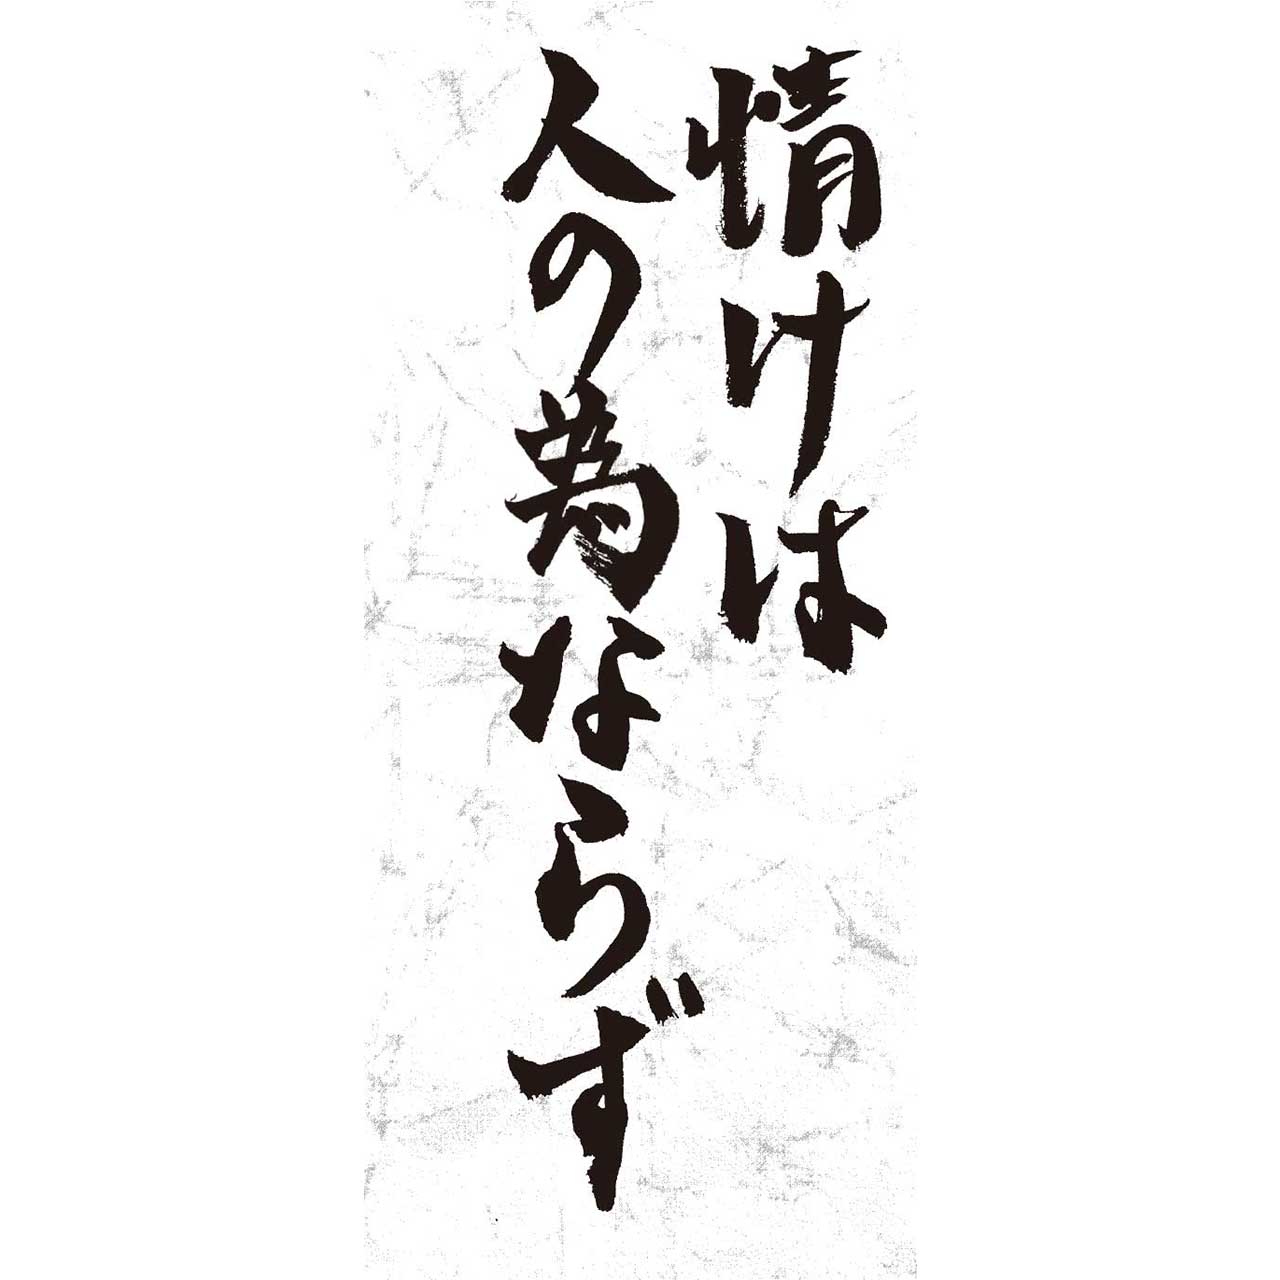 情けは
人の為ならず